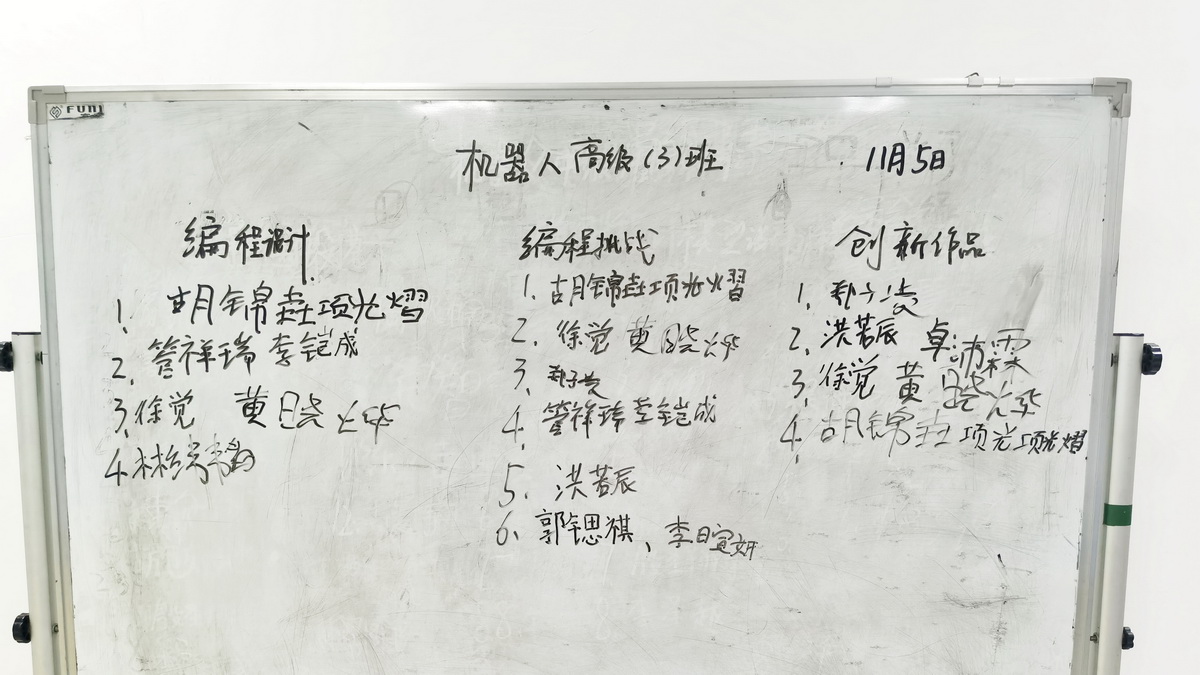 FUNJ
机器人高级(3)班 11月5日
编程设计
1. 胡锦垚 项光熠
2. 管祥瑞 李铠成
3. 徐觉 黄晓烨
4. 林
编程挑战
1. 胡锦垚 项光熠
2. 徐觉 黄晓烨
3.
4. 管祥瑞 李铠成
5. 洪若辰
6. 郭锶祺、李日宣妍
创新作品
1.
2. 洪若辰 卓沛霖
3. 徐觉 黄晓烨
4. 胡锦垚 项光项光熠